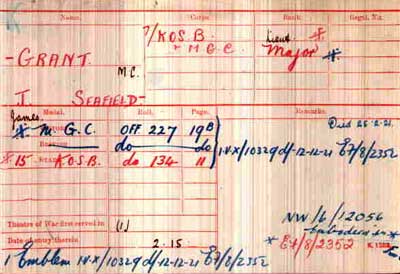 Name. Corps. Rank. Regtl. No.
7/KOSB. Lieut. *
-GRANT. " M G C. Major *
M.C.
J. SEAFIELD-
James
Medal. Roll. Page. Remarks.
* M. G. C. OFF 227 19B Died 25.2.21.
do do IVX/10329 df/12-12-21 E7/8/2352
* 15 STAR KOSB. do 134 11
NW/6/12056
Theatre of War first served in (1)
* E7/8/2352 K.1383
Date of entry therein 2.15.
1 Emblem IVX/10329 df/12-12-21 E7/8/2352